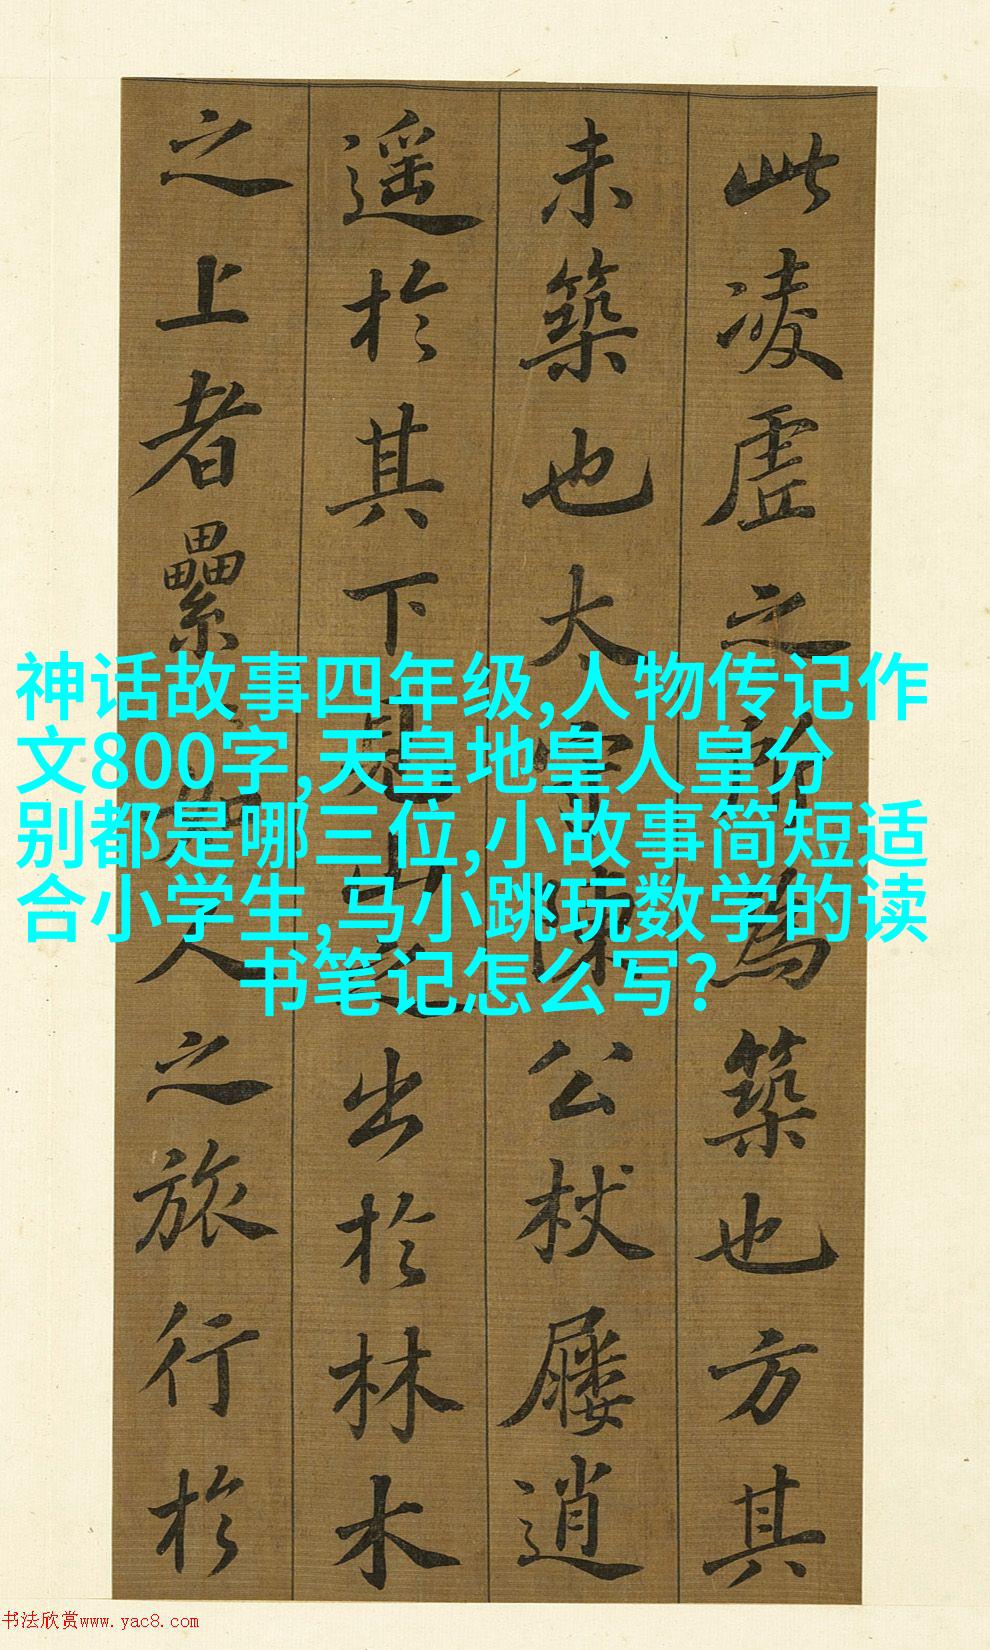 此凌虛之所為築也方其
未築也太守陳公杖屨逍
遥於其下見山之出於林木
之上者纍纍如人之旅行於
神话故事四年级,人物传记作
文800字,天皇地皇人皇分
别都是哪三位,小故事简短适
合小学生,马小跳玩数学的读
书笔记怎么写?
书法欣赏www.yac8.com